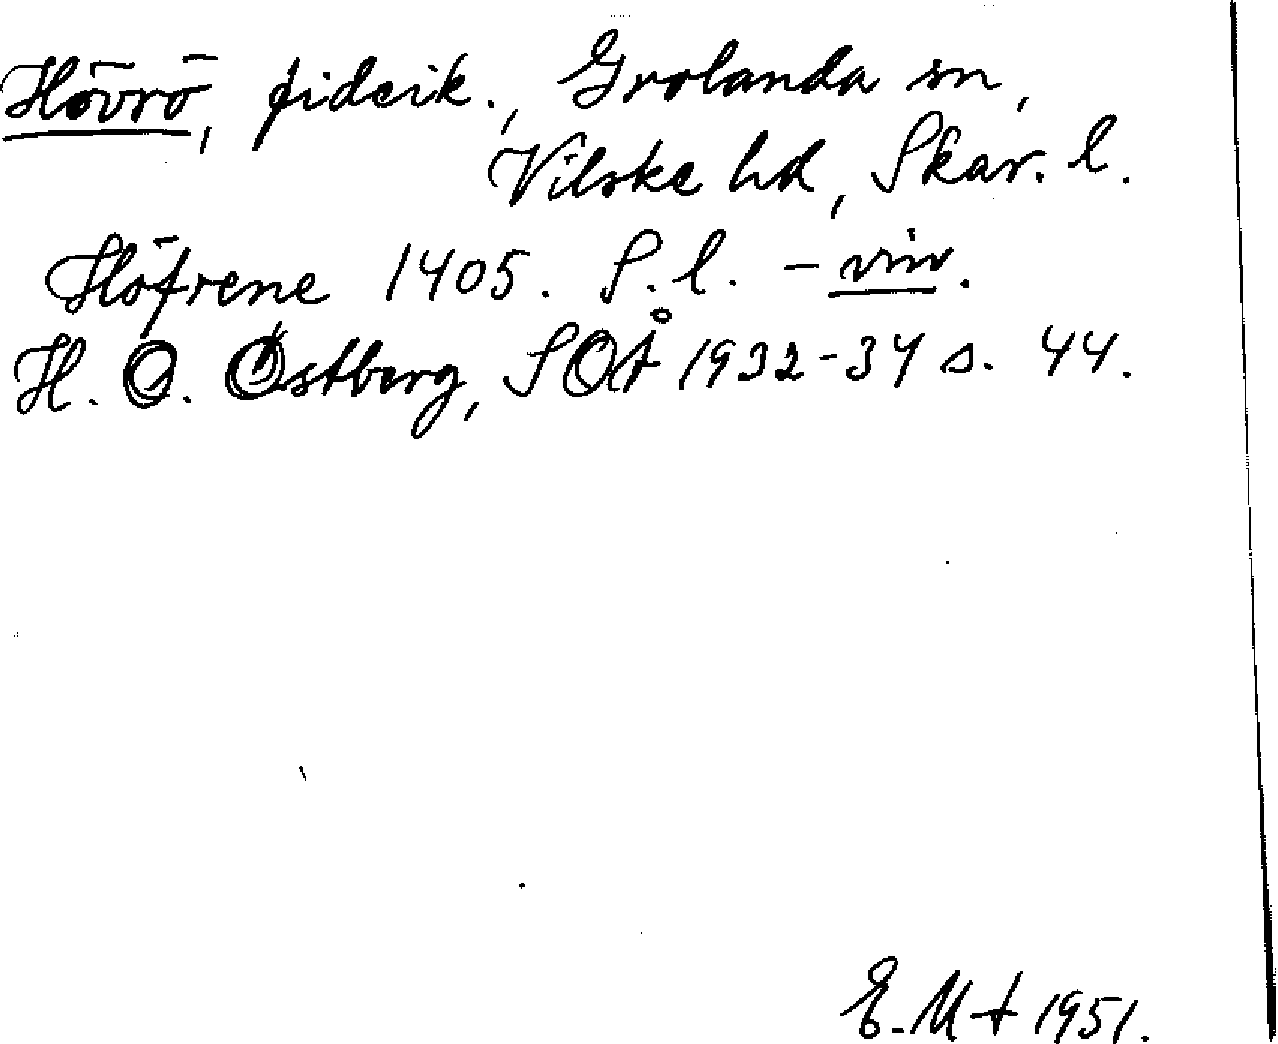 Hövrö, fideik., Grolanda sn,
Vilske hd, Skar. l.
Höfrene 1405. S. l. - vin.
H. O. Östberg, SOÅ 1932-34 s. 44.
E. Mt 1951.